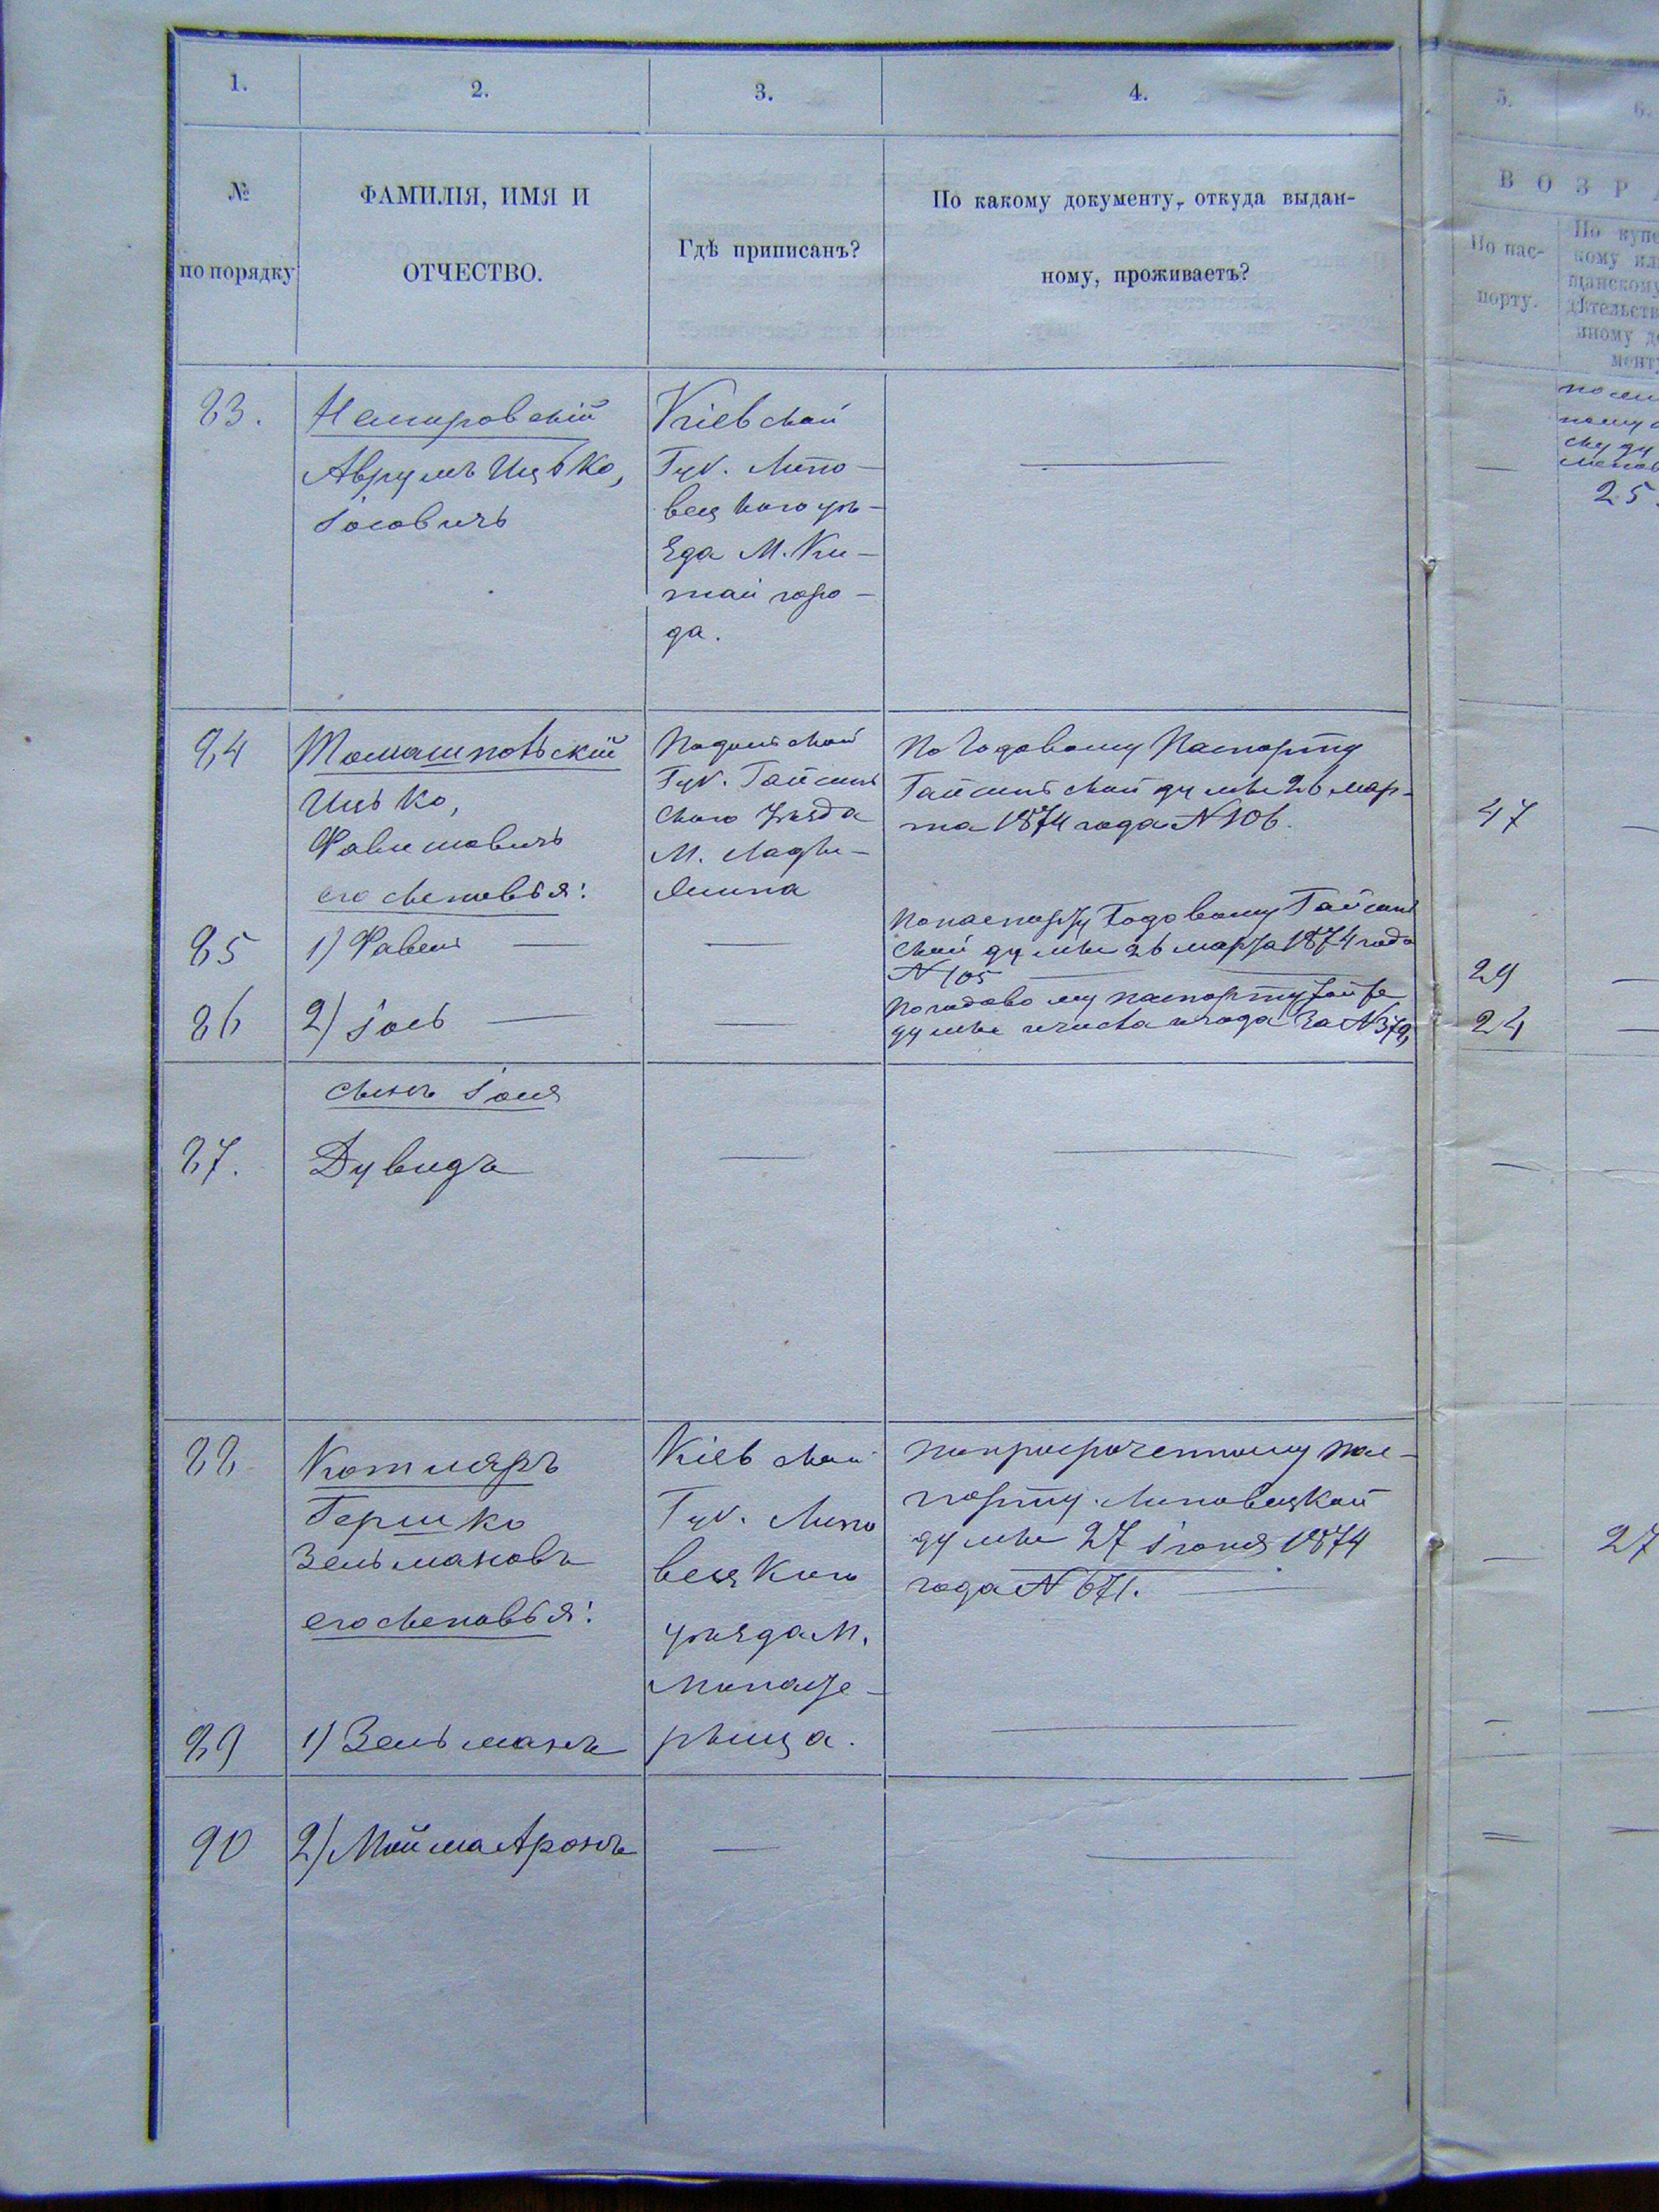 1.
2.
3.
4.
5.
6.
№
по порядку
ФАМИЛІЯ, ИМЯ И
ОТЧЕСТВО.
Гдѣ приписанъ?
По какому документу, откуда выдан-
ному, проживаетъ?
В О З Р А
По пас-
порту.
По купе
кому ил
щанскому
дѣтельств
иному до
менту
83.
Немировскій
Аврумъ Ицько,
Іосовичъ
Кіевской
Губ. Липо-
вецкого уѣ-
зда М. Ки-
тай горо-
да.
25
84
Томашповьскій
Ицько,
его сыновья:
Подольской
Губ. Гайсинь
ского Уѣзда
М. Лады-
жина
По Годовому Паспорту
Гайсинской думы 26 мар-
та 1874 года N 106.
47
85
1) Фавель
По паспорту Годовому Гайсин
ской думы 26 марта 1874 года
N 105
29
86
2) Іось
По годовому паспорту той же
думы числа и года за N
24
сынъ Іося
87.
Дувидъ
88
Котляръ
Гершко
Зельмановъ
его сыновья:
Кіевской
Губ. Липо
вецкого
уѣзда М.
Монасте-
рыща.
По просроченному пас-
порту Липовецкой
думы 27 іюня 1874
года N 671.
27
89
1) Зельманъ
90
2) Мойша Аронъ